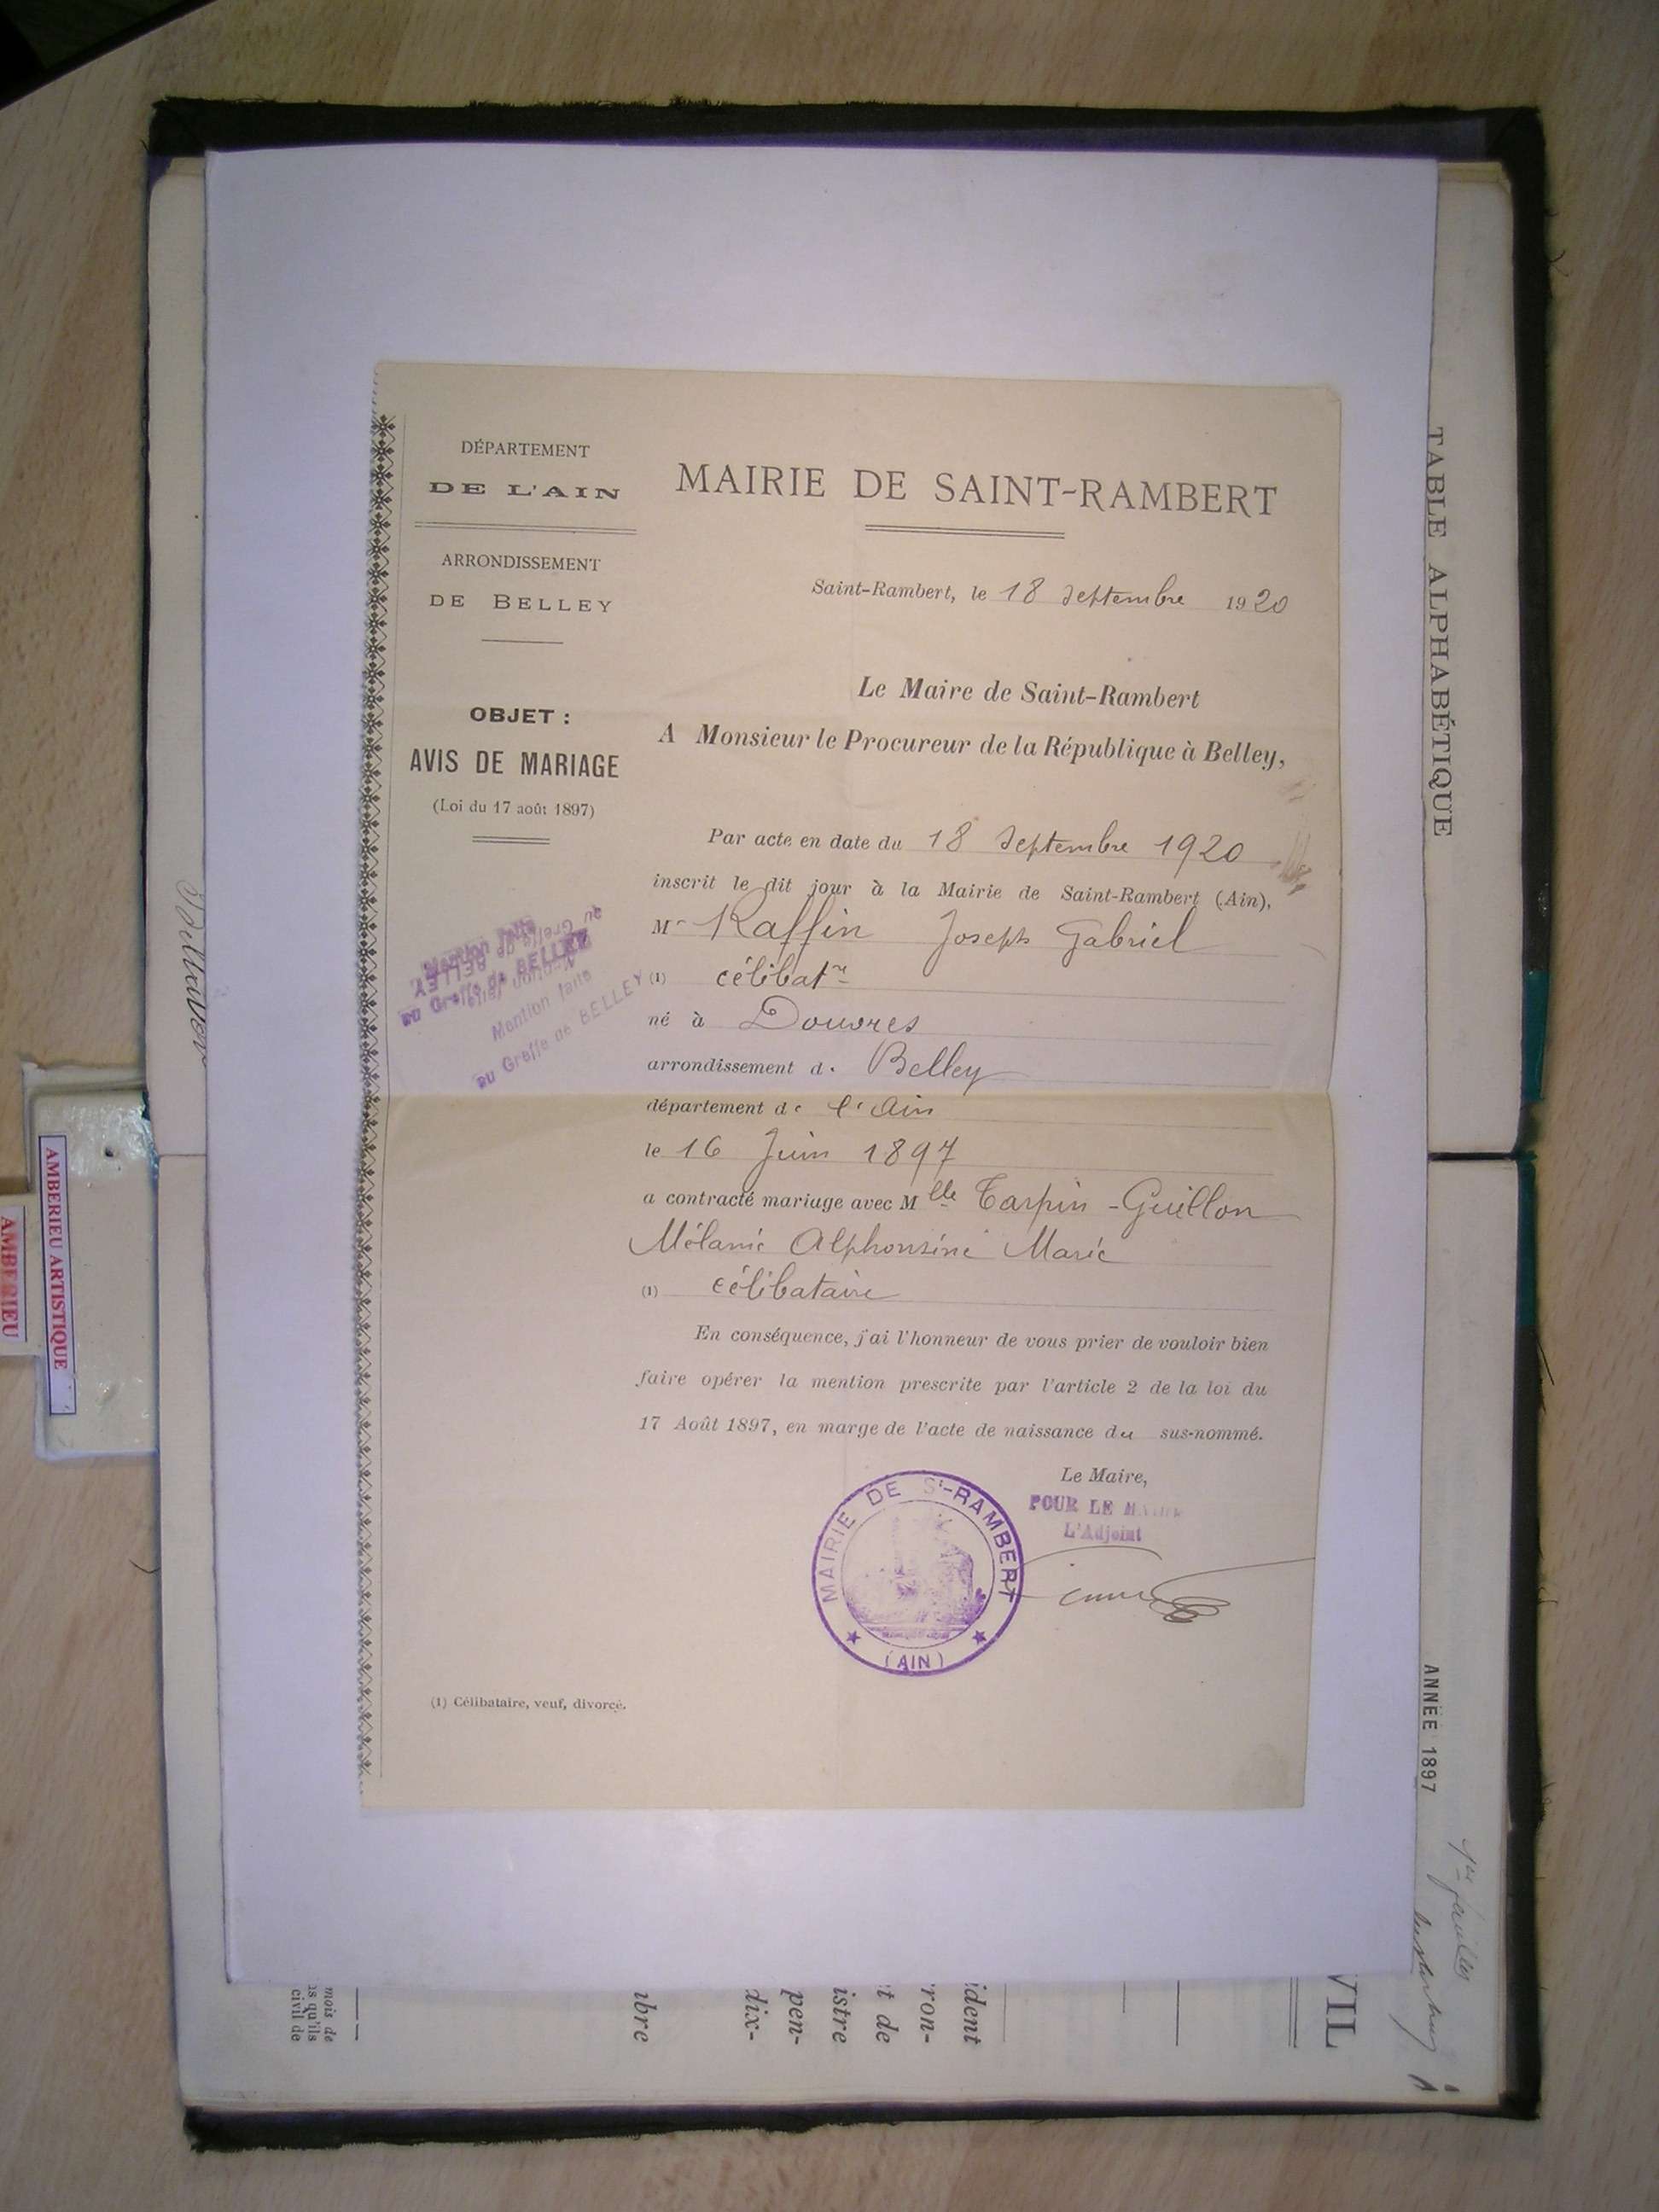 DÉPARTEMENT
DE L'AIN
ARRONDISSEMENT
DE BELLEY
OBJET :
AVIS DE MARIAGE
(Loi du 17 août 1897)
Mention faite
au Greffe de BELLEY
MAIRIE DE SAINT-RAMBERT
Saint-Rambert, le 18 septembre 1920
Le Maire de Saint-Rambert
A Monsieur le Procureur de la République à Belley,
Par acte en date du 18 septembre 1920
inscrit le dit jour à la Mairie de Saint-Rambert (Ain),
Mr Raffin Joseph Gabriel
(1) célibatre
né à Douvres
arrondissement de Belley
département de l'Ain
le 16 Juin 1897
a contracté mariage avec Mlle Tarpin-Guillon
Mélanie Alphonsine Marie
(1) célibataire
En conséquence, j'ai l'honneur de vous prier de vouloir bien
faire opérer la mention prescrite par l'article 2 de la loi du
17 Août 1897, en marge de l'acte de naissance du sus-nommé.
Le Maire,
POUR LE MAIRE
L'Adjoint
MAIRIE DE St-RAMBERT
(AIN)
(1) Célibataire, veuf, divorcé.
TABLE ALPHABÉTIQUE
ANNÉE 1897
AMBERIEU ARTISTIQUE
AMBERIEU
VIL
ident
ron-
t de
istre
pen-
dix-
ibre
mois de
is qu'ils
civil de